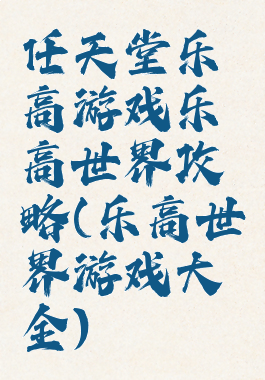 任天堂乐
高游戏乐
高世界攻
略(乐高世
界游戏大
全)